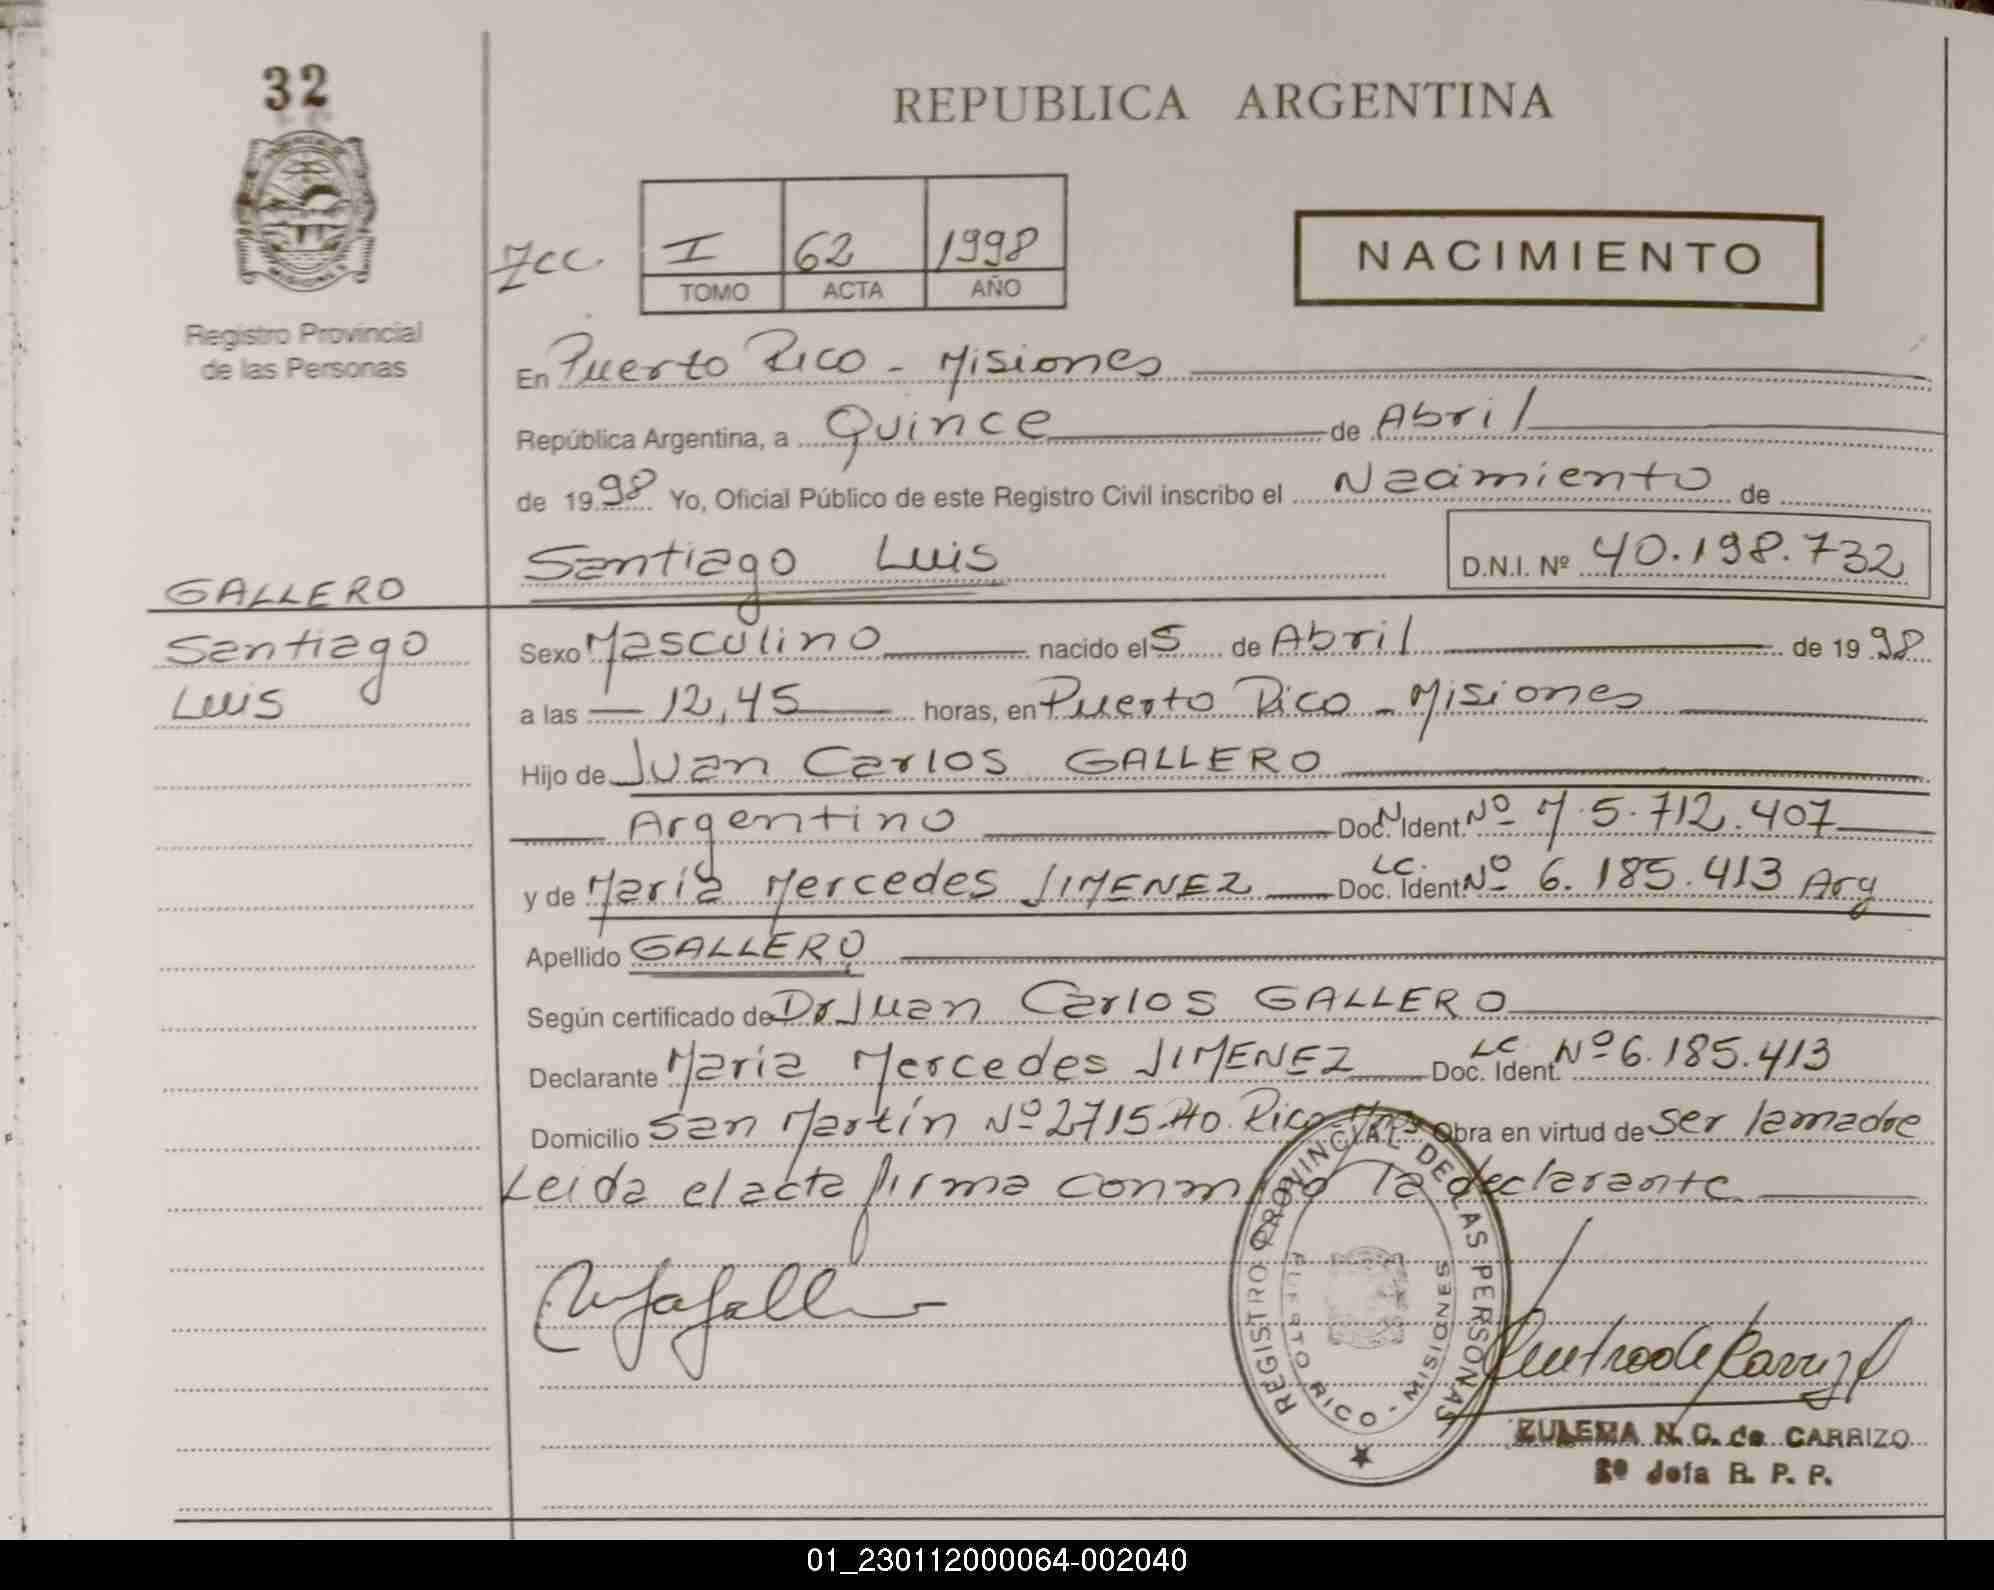 32
REPUBLICA ARGENTINA
I 62 1998
TOMO ACTA AÑO
NACIMIENTO
Registro Provincial
de las Personas
En Puerto Rico - Misiones
República Argentina, a Quince de Abril
de 1998 Yo, Oficial Público de este Registro Civil inscribo el Nacimiento de
Santiago Luis D.N.I. Nº 40.198.732
GALLERO
Santiago
Luis
Sexo Masculino nacido el 5 de Abril de 1998
a las 12,45 horas, en Puerto Rico - Misiones
Hijo de Juan Carlos GALLERO
Argentino Doc. Ident. Nº M 5.712.407
y de María Mercedes JIMENEZ Doc. Ident. LC. Nº 6.185.413 Arg
Apellido GALLERO
Según certificado de Dr Juan Carlos GALLERO
Declarante María Mercedes JIMENEZ Doc. Ident. LC. Nº 6.185.413
Domicilio San Martín Nº 2715 Pto. Rico Mnes Obra en virtud de ser la madre
Leida el acta firma conmigo la declarante
REGISTRO PROVINCIAL DE LAS PERSONAS
PUERTO RICO - MISIONES
ZULEMA N. C. de CARRIZO
Jefa R. P. P.
01_230112000064-002040